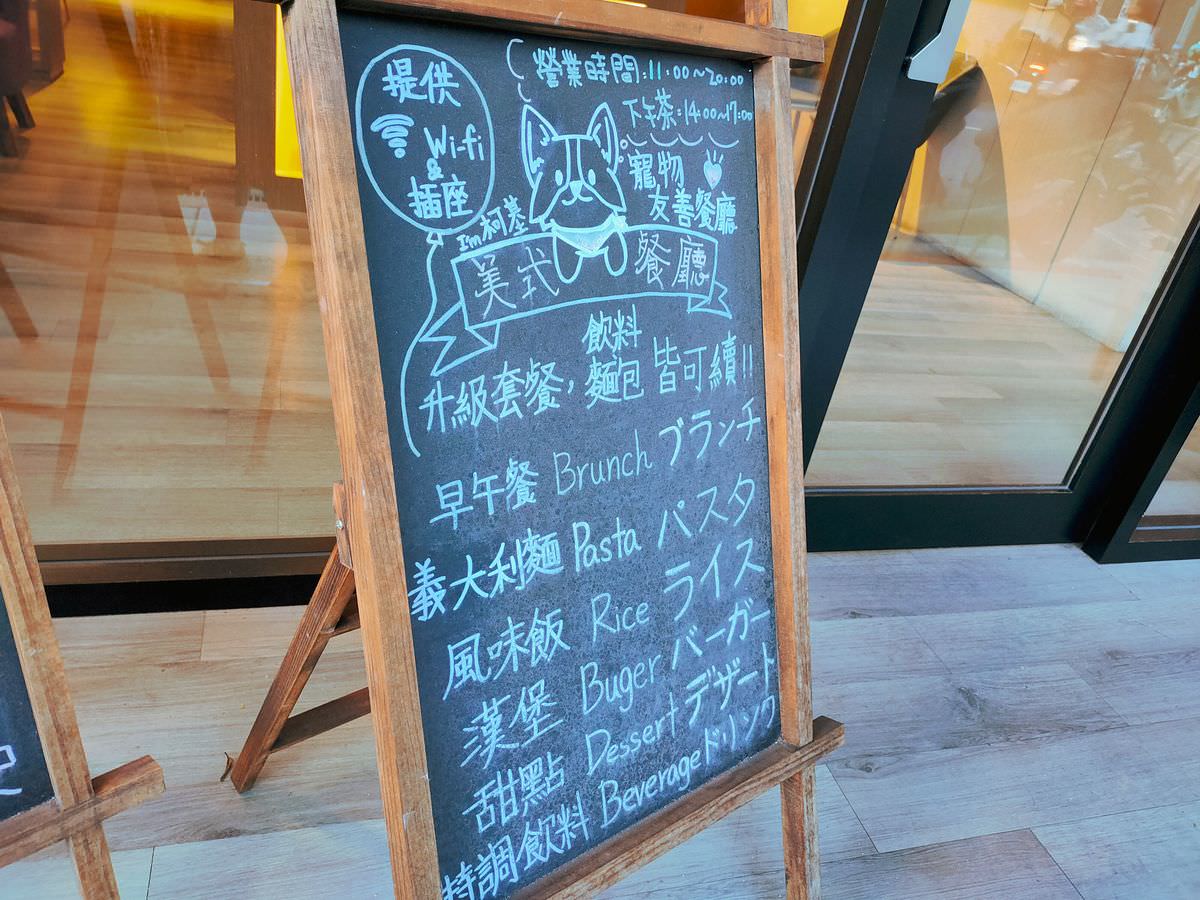 提供
Wi-fi
&
插座
營業時間:11:00~20:00
下午茶:14:00~17:00
寵物
友善餐廳
I'm柯基
美式餐廳
飲料
升級套餐,麵包皆可續!!
早午餐 Brunch ブランチ
義大利麵 Pasta パスタ
風味飯 Rice ライス
漢堡 Buger バーガー
甜點 Dessert デザート
特調飲料 Beverage ドリンク